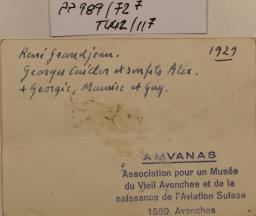 PP989/72⁷
TU42/117
René Grandjean. 1929
Georges Cailler et son fils Alex.
+ Georgie, Maurice et Guy.
AMVANAS
Association pour un Musée
du Vieil Avenches et de la
naissance de l'Aviation Suisse
1580 Avenches